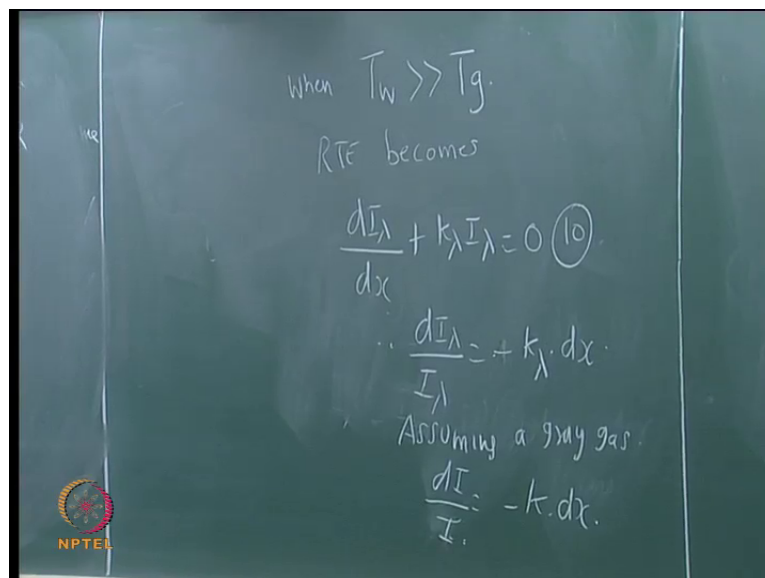 When T_w >> T_g.
RTE becomes
dI_λ/dx + k_λ I_λ = 0 (10)
∴ dI_λ/I_λ = - k_λ . dx.
Assuming a gray gas.
dI/I. = - k . dx.
NPTEL